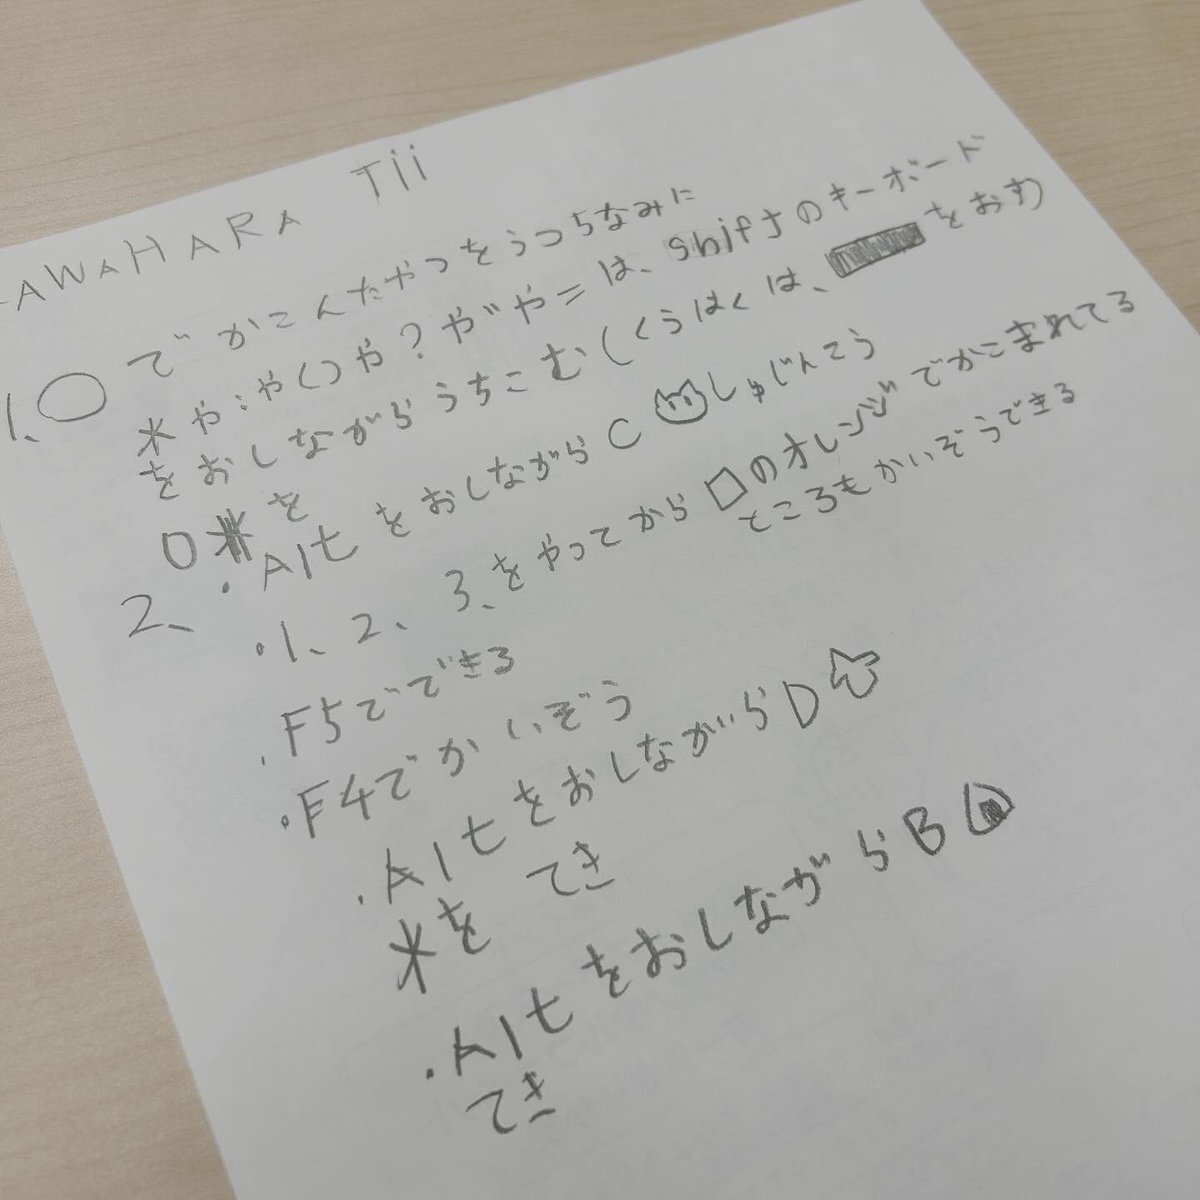 AWAHARA Tii
1、○でかこんだやつをうつちなみに
*や:や()や?や"や=は、shiftのキーボード
をおしながらうちこむ(くうはくは、をおす
0*を
2、・Altをおしながら C しゅじんこう
・1、2、3、をやってから□のオレンジでかこまれてる
ところもかいぞうできる
・F5でできる
・F4でかいぞう
・AltをおしながらD
*を てき
・AltをおしながらB
てき